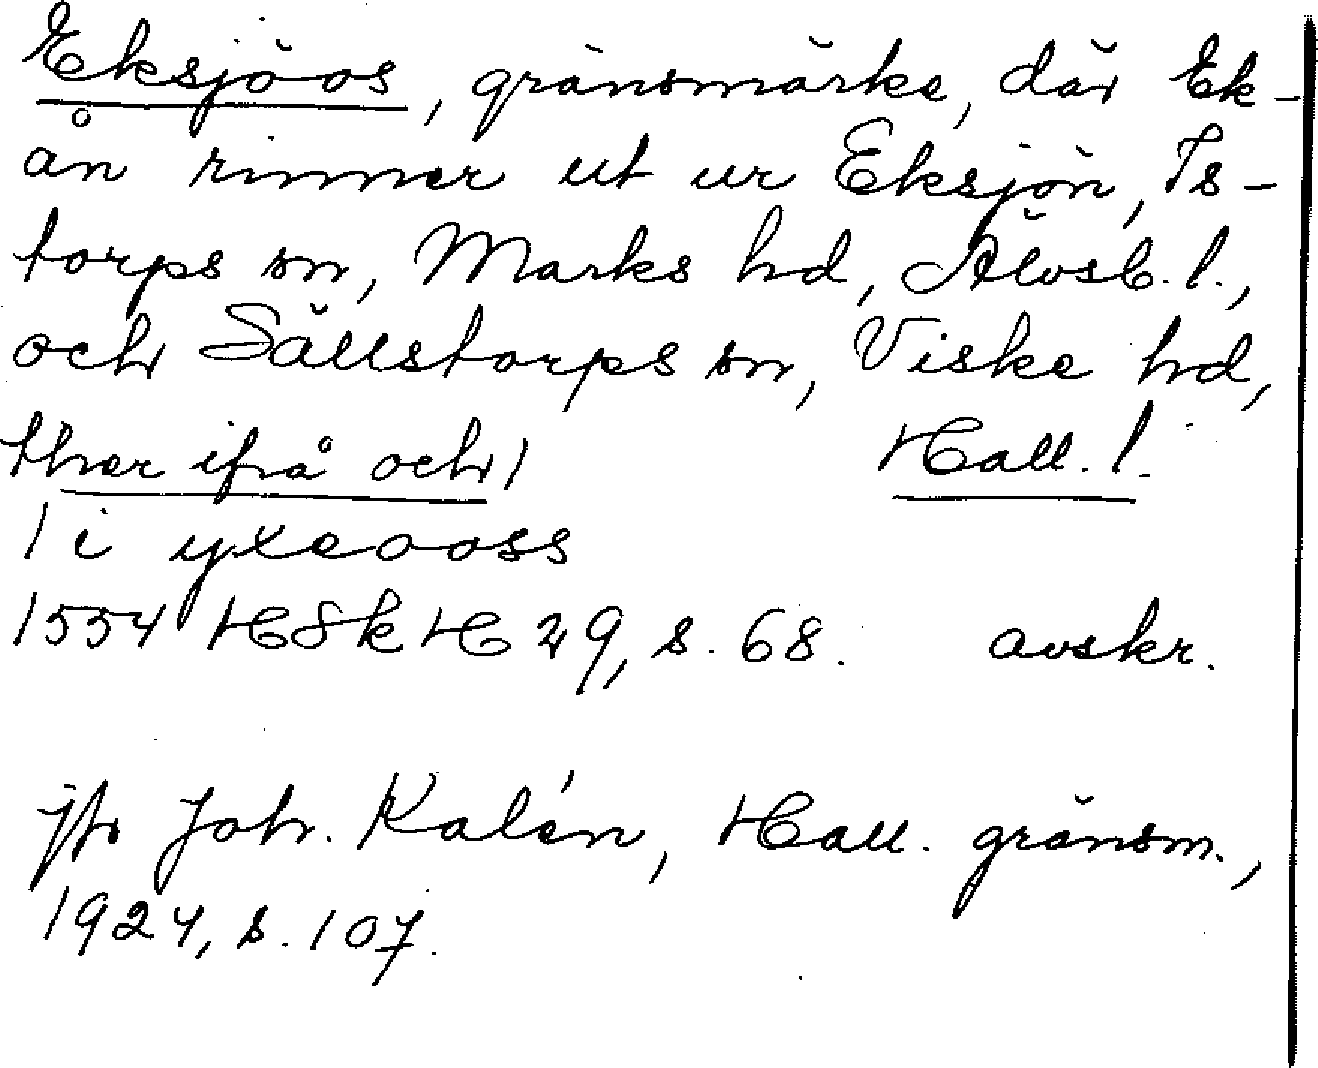 Eksjöos, gränsmärke, där Ek-
ån rinner ut ur Eksjön, Is-
torps sn, Marks hd, Älvsb. l.,
och Sällstorps sn, Viske hd,
Hall. l.
ther ifrå och/
/i yxeooss
1554 HSkH 29, s. 68. avskr.
jfr Joh. Kalén, Hall. gränsm.,
1924, s. 107.